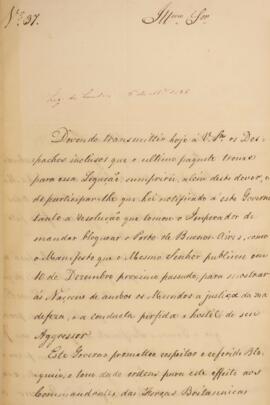 Nº 37.
Illmo Snr.
Devendo transmittir hoje á V. Sa. os Des
pachos inclusos que o ultimo paquete trouxe
para essa Legação, cumprirei, alem deste dever, o
de participar-lhe que hei notificado á este Governo
tanto a resolução que tomou o Imperador de
mandar bloquear o Porto de Buenos-Aires, como
o Manifesto que o Mesmo Senhor publicou em
10 de Dezembro proximo passado, para mostrar
ás Naçoens de ambos os Mundos a justiça da sua
defeza, e a conducta perfida e hostil de seu
Aggressor.
Este Governo prometteo respeitar o referido Blo
queio, e tem dado ordens para este effeito aos
Commandantes das Forças Britanicas